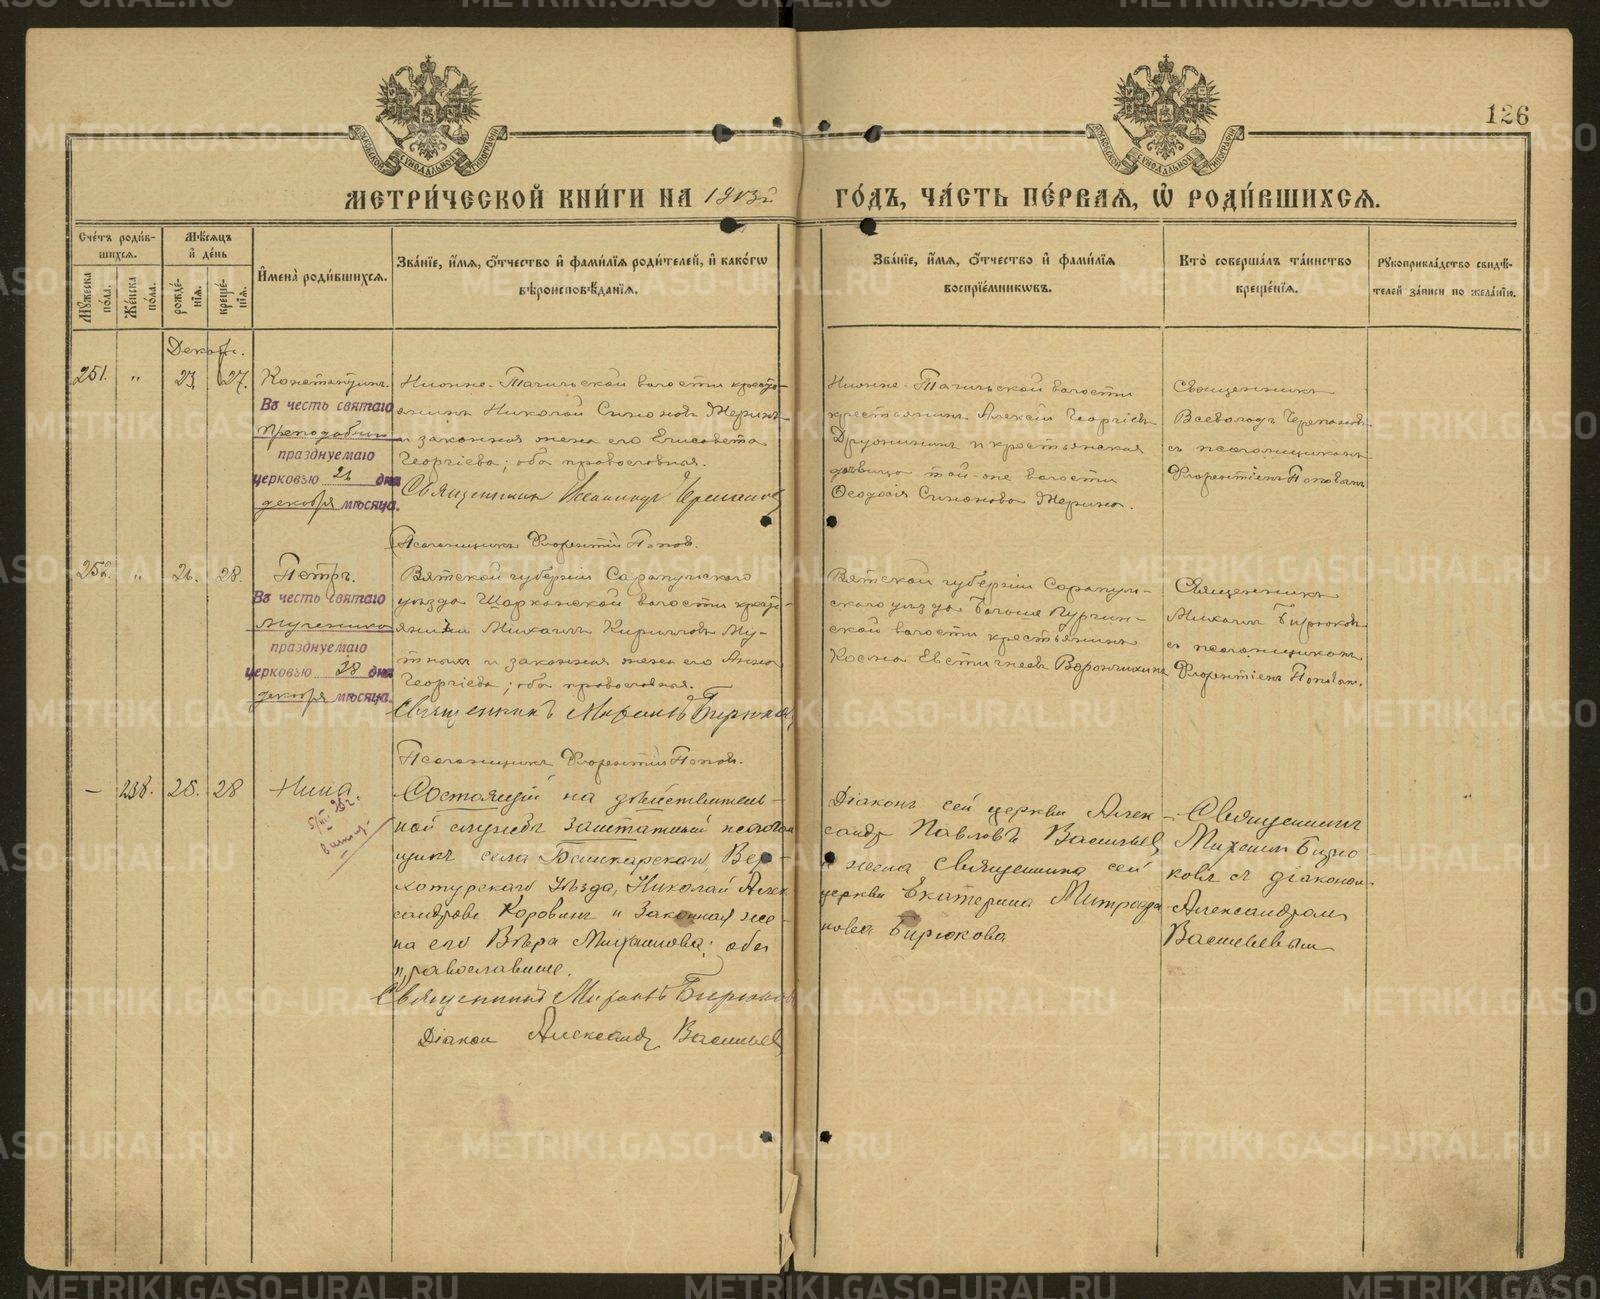 126
МОСКОВСКОЙ СУНОДАЛЬНОЙ ТИПОГРАФІИ
МОСКОВСКОЙ СУНОДАЛЬНОЙ ТИПОГРАФІИ
МЕТРИ́ЧЕСКОЙ КНИ́ГИ НА 1913й ГО́ДЪ, ЧА́СТЬ ПЕ́РВАЯ, Ѡ РОДИ́ВШИХСЯ.
Сче́тъ роди́в-
шихся.
Мѣ́сяцъ
и де́нь
Мꙋ́жеска по́ла.
Же́нска по́ла.
рожде́-
нїя.
креще́-
нїя.
И҆мена̀ роди́вшихся.
Зва́нїе, и҆́мя, ѻ҆́тчество и҆ фами́лїя роди́телей, и҆ како́гѡ
вѣроисповѣ́данїя.
Зва́нїе, и҆́мя, ѻ҆́тчество и҆ фами́лїя
воспрїе́мникѡвъ.
Кто̀ соверша́лъ та́инство
креще́нїя.
Рꙋкоприкла́дство свидѣ́-
телей за́писи по жела́нїю.
Декабрь.
251. " 23. 27. Константинъ.
Въ честь святаго
преподобнаго
празднуемаго
церковью дня
декабря мѣсяца.
Нижне-Тагильской волости кресть-
янинъ Николай Симоновъ
и законная жена его Елисавета
Георгіева; оба православные.
Священникъ
Псаломщикъ Флорентій Поповъ.
Нижне-Тагильской волости
крестьянинъ Алексѣй Георгіевъ
Дружининъ и крестьянская
дѣвица той-же волости
Ѳеодосія Симонова
Священникъ
Всеволодъ Черепановъ
съ псаломщикомъ
Флорентіемъ Поповымъ
252. " 26. 28. Петръ.
Въ честь святаго
мученика
празднуемаго
церковью 28 дня
декабря мѣсяца.
Вятской губерніи Сарапульскаго
уѣзда Шарканской волости кресть-
янинъ Михаилъ Кирилловъ
и законная жена его Анна
Георгіева; оба православные.
Священникъ Михаилъ Бирюковъ
Псаломщикъ Флорентій Поповъ.
Вятской губерніи Сарапуль-
скаго уѣзда Больше Пургин-
ской волости крестьянинъ
Косма Евстигнеевъ Ворончихинъ
Священникъ
Михаилъ Бирюковъ
съ псаломщикомъ
Флорентіемъ Поповымъ.
— 238. 28 Нина.
Состоящій на дѣйствитель-
ной службѣ заштатный псалом-
щикъ села Башкарскаго, Вер-
хотурскаго уѣзда, Николай Алек-
сандровъ Коровинъ и законная же-
на его Вѣра Михаилова; оба
православные.
Священникъ Михаилъ Бирюковъ
Діаконъ Александръ Васильевъ
Діаконъ сей церкви Алек-
сандръ Павловъ Васильевъ
и жена священника сей
церкви Екатерина Митрофа-
нова Бирюкова
Священникъ
Михаилъ Бирю-
ковъ съ діакономъ
Александромъ
Васильевымъ